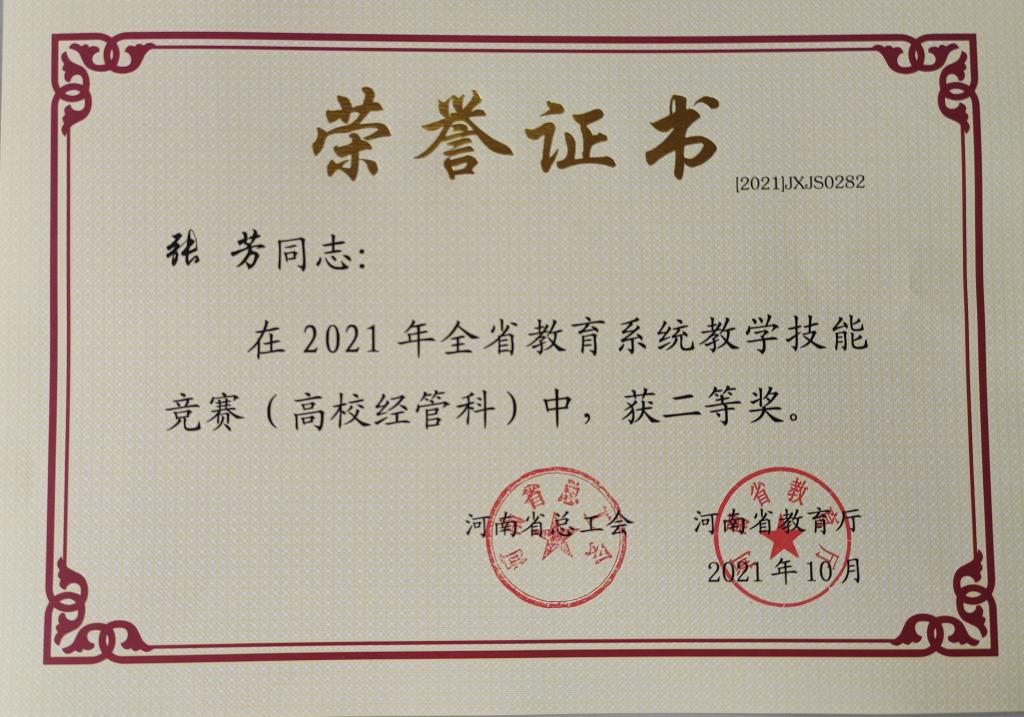 荣誉证书
[2021]JXJS0282
张 芳同志：
在 2021 年全省教育系统教学技能
竞赛（高校经管科）中，获二等奖。
河南省总工会
河南省教育厅
河南省总工会
河南省教育厅
2021 年 10 月